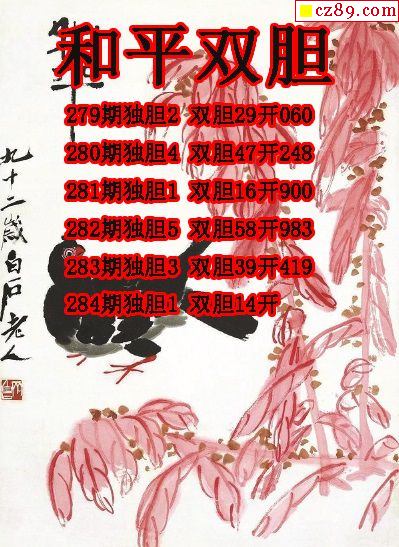 cz89.com
和平双胆
279期独胆2 双胆29开060
280期独胆4 双胆47开248
281期独胆1 双胆16开900
282期独胆5 双胆58开983
283期独胆3 双胆39开419
284期独胆1 双胆14开
九十二岁白石老人